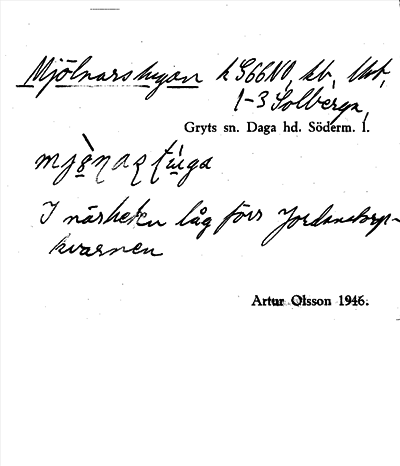 Mjölnarstugan k S66NV, kb, Utb,
1-3 Solberga,
Gryts sn. Daga hd. Söderm. l.
I närheten låg förr Jordanstorp-
kvarnen
Artur Olsson 1946.